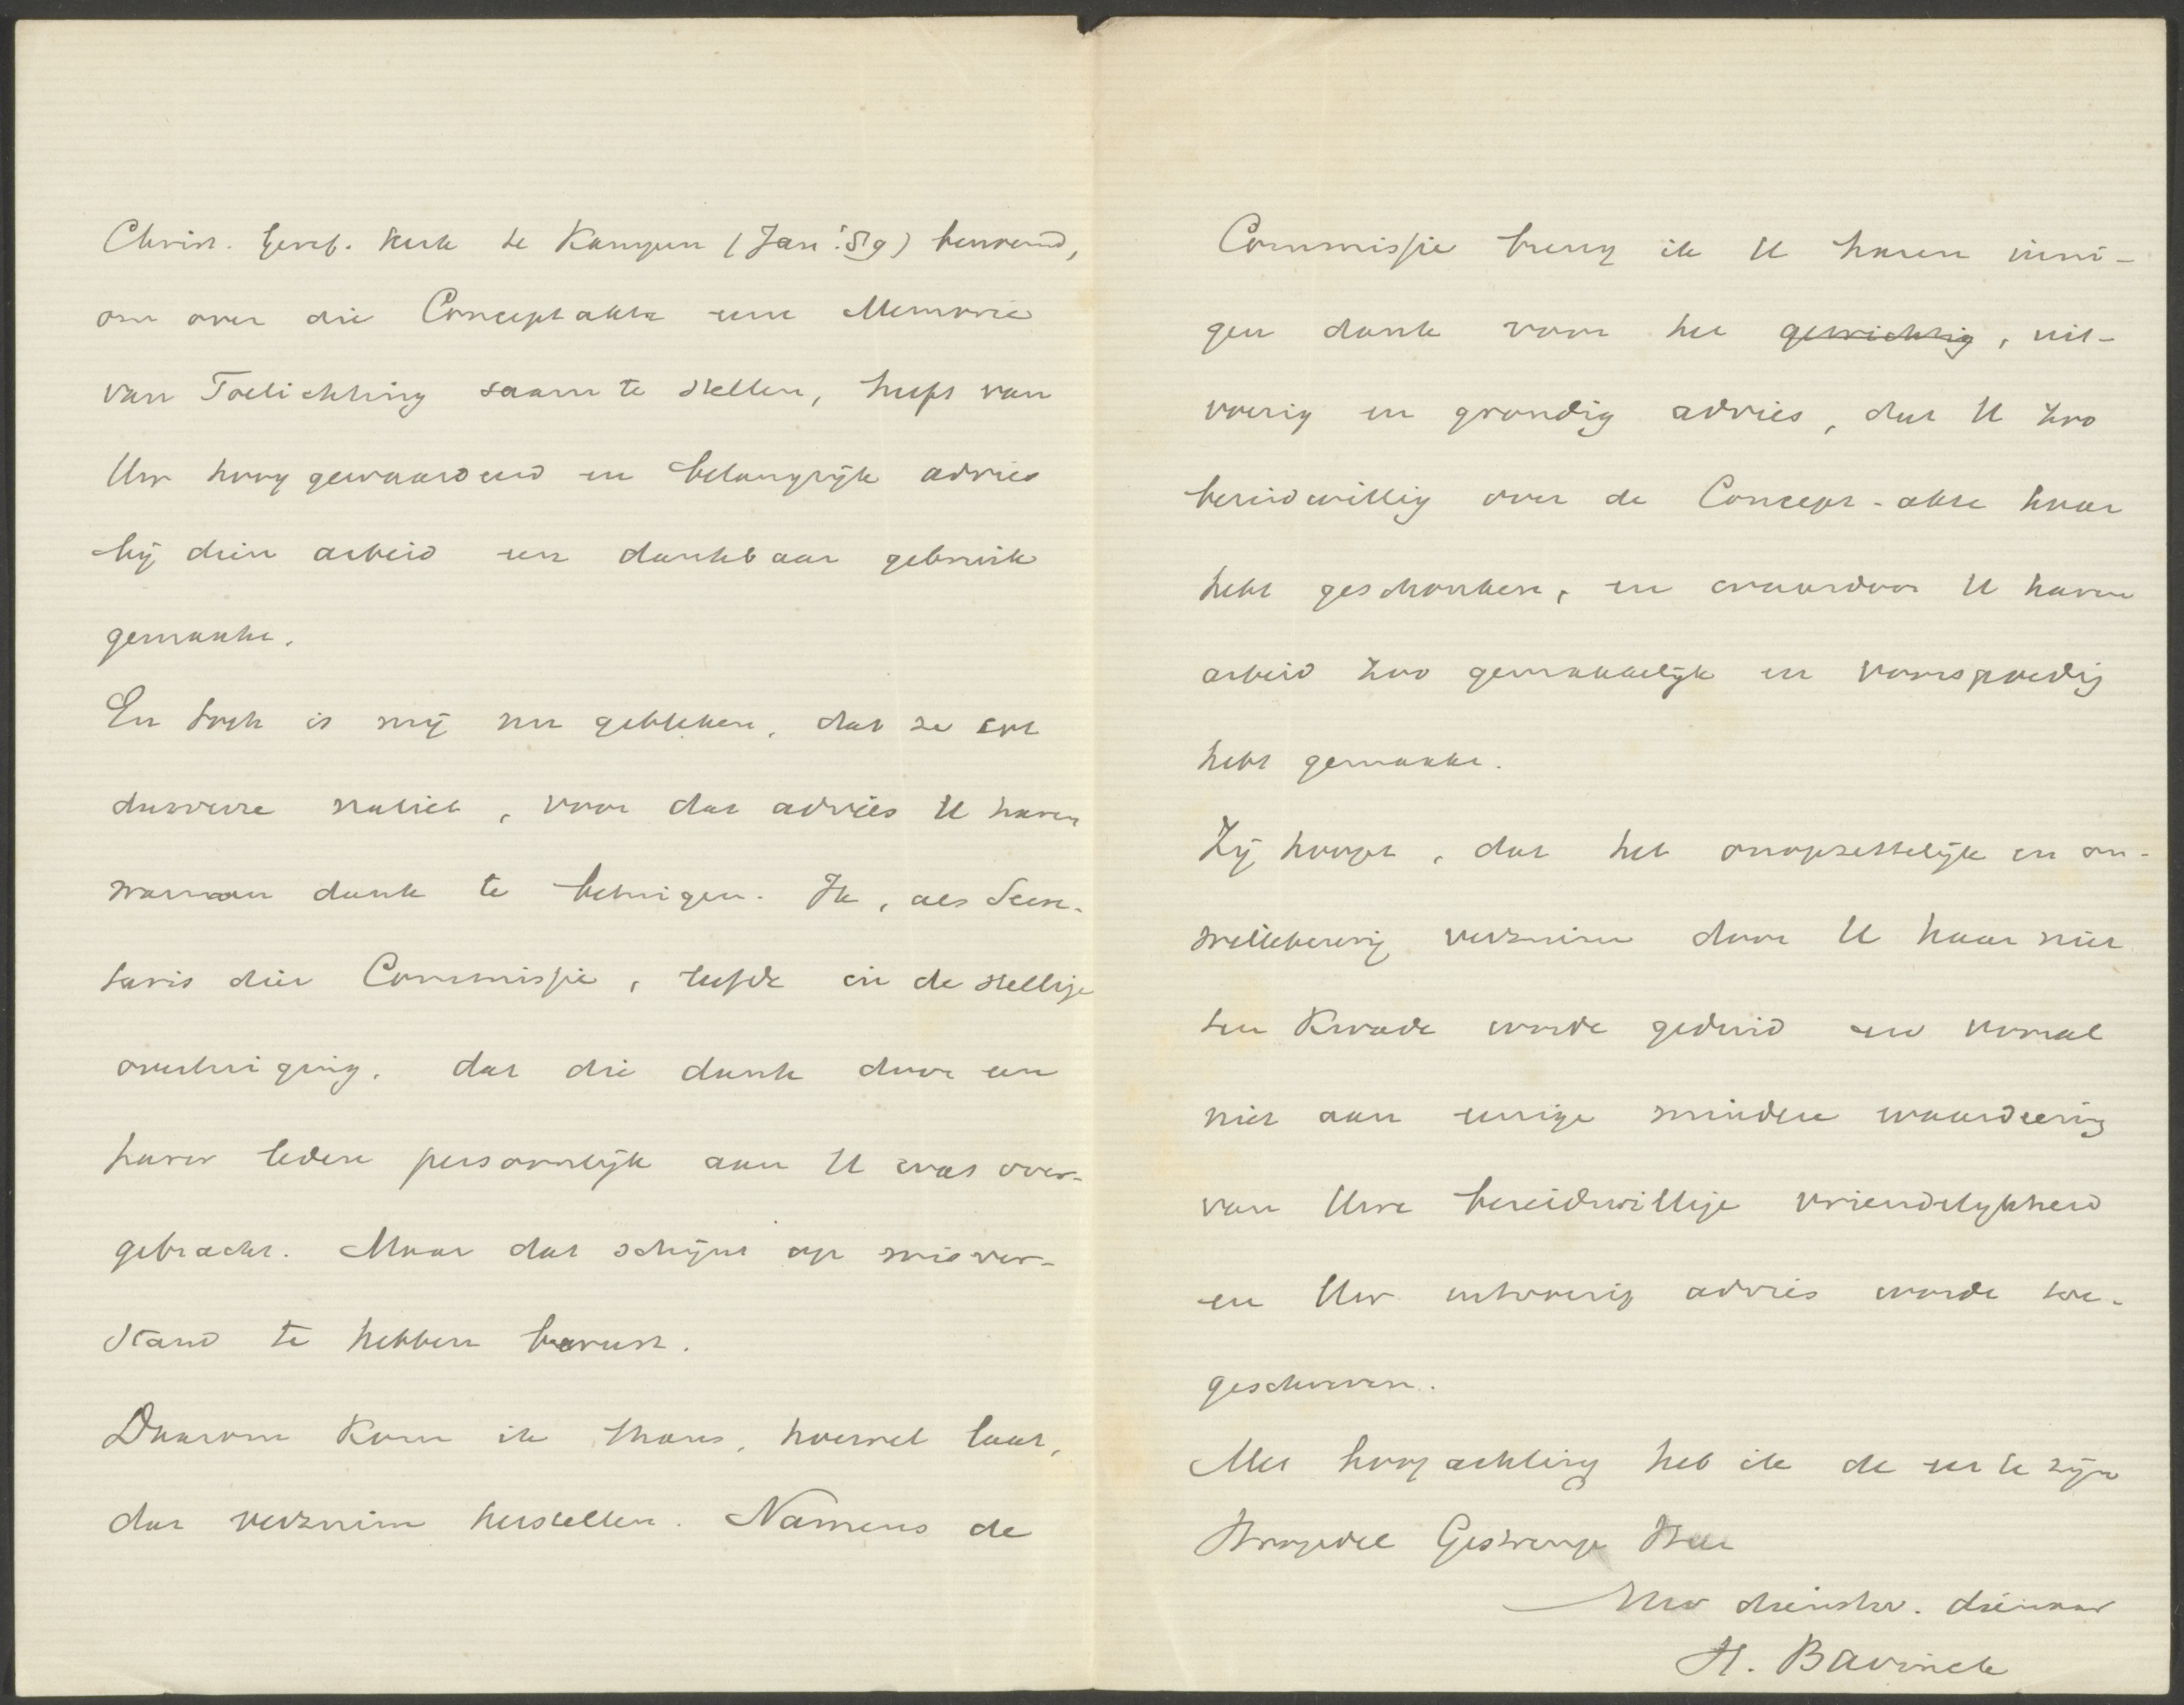 Christ. Geref. Kerk te Kampen (Jan. '89) benoemd,
om over die Conceptakte eene Memorie
van Toelichting saam te stellen, heeft van
Uw hoog gewaardeerd en belangrijk advies
bij dien arbeid een dankbaar gebruik
gemaakt.
En toch is mij nu gebleken, dat ze tot
dusverre naliet, voor dat advies U haren
warmen dank te betuigen. Ik, als Secre-
taris dier Commissie, leefde in de stellige
overtuiging, dat die dank door een
harer leden persoonlijk aan U was over-
gebracht. Maar dat schijnt op misver-
stand te hebben berust.
Daarom kom ik thans, hoewel laat,
dat verzuim herstellen. Namens de
Commissie breng ik U haren inni-
gen dank voor het gewichtig, uit-
voerig en grondig advies, dat U zoo
bereidwillig over de Concept-akte haar
hebt geschonken, en waardoor U haren
arbeid zoo gemakkelijk en voorspoedig
hebt gemaakt.
Zij hoopt, dat het onopzettelijk en on-
willekeurig verzuim door U haar niet
ten kwade worde geduid en vooral
niet aan eenige mindere waardeering
van Uwe bereidwillige vriendelijkheid
en Uw uitvoerig advies worde toe-
geschreven.
Met hoogachting heb ik de eer te zijn
Hoogedel Gestrenge Heer
Uw dienstw. dienaar
H. Bavinck